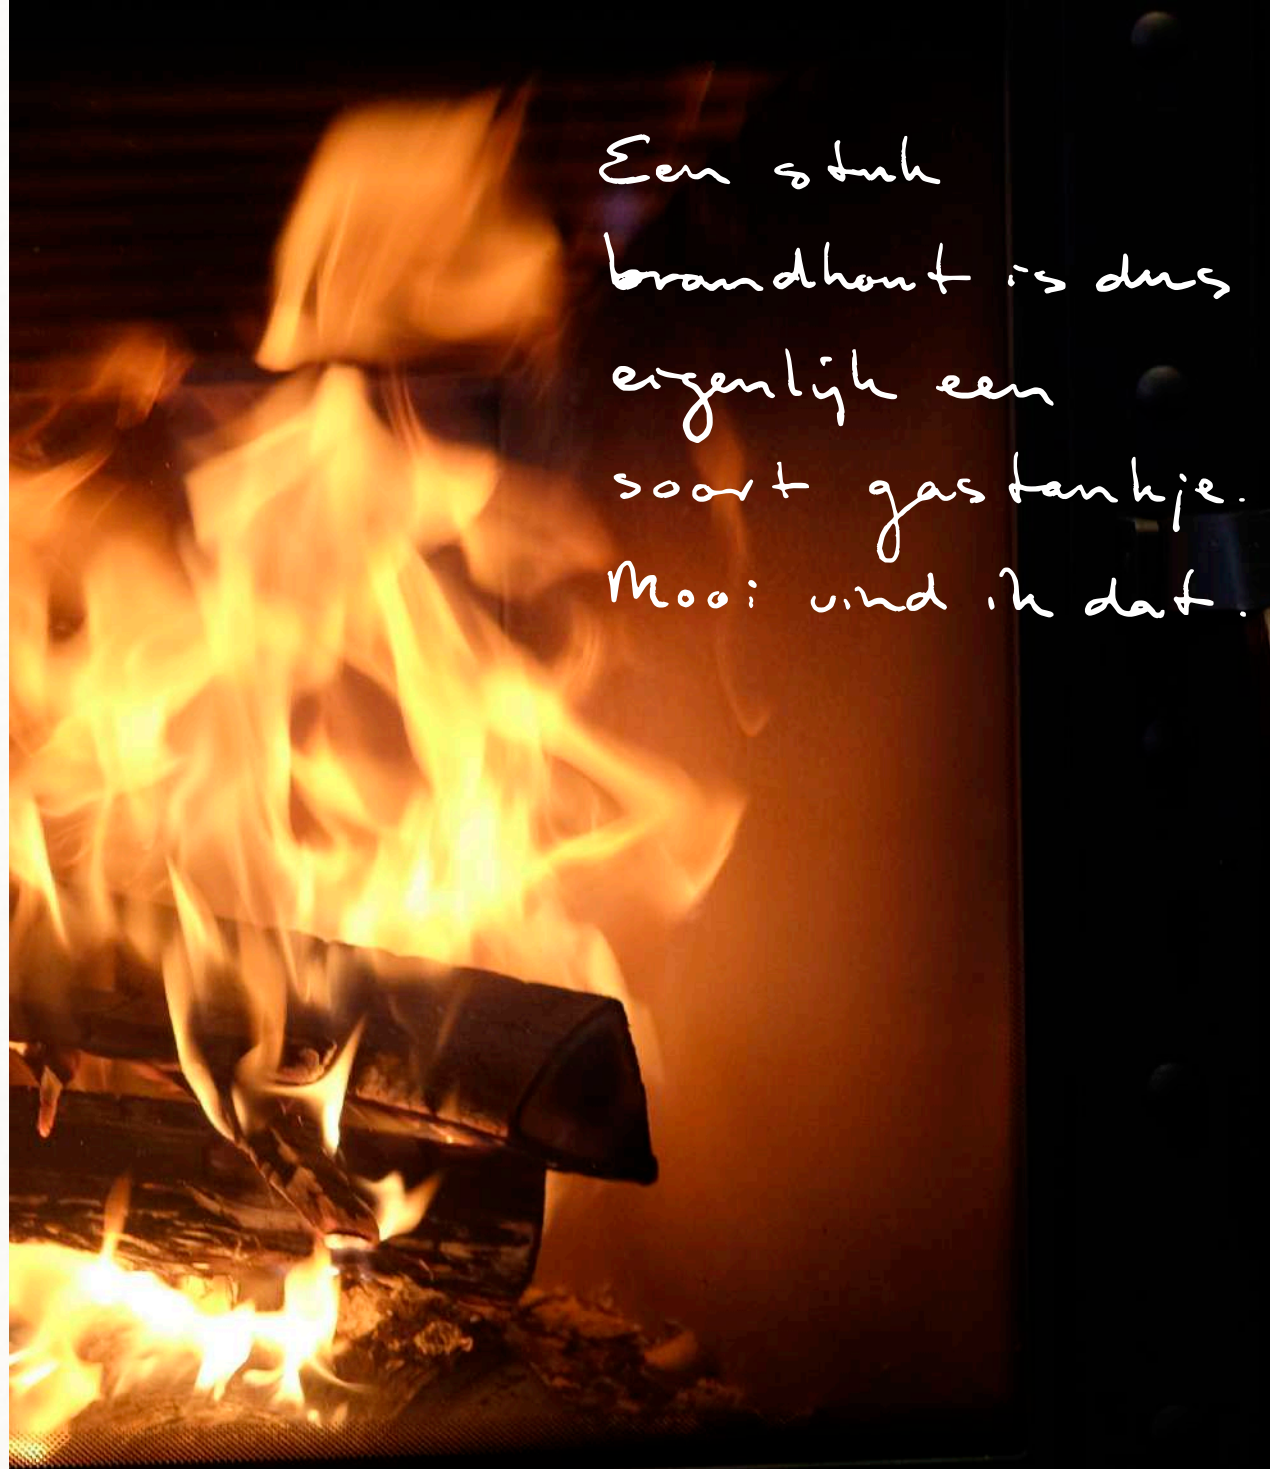 Een stuk
brandhout is dus
eigenlijk een
soort gastankje.
Mooi vind ik dat.